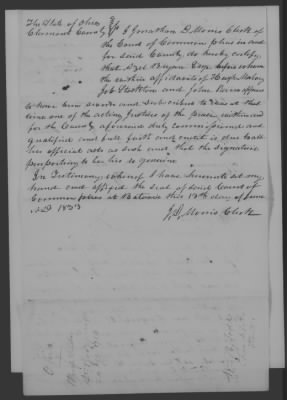 The State of Ohio
Clermont County } I Jonathan D Morris Clerk of
the Court of Common pleas in and
for said County, do hereby certify,
that Esqr before whom
the within affidavits of
Job Stockton and John
to have been sworn and Subscribed to was at that
time one of the acting Justices of the peace within and
for the County aforesaid duly commissioned and
qualified and full faith and credit is due to all
his official acts as such and that the signature
purporting to be his is genuine
In Testimony whereof I have hereunto set my
hand and affixed the seal of said Court of
Common pleas at Batavia this 13th day of June
AD 1833
J. D. Morris Clerk